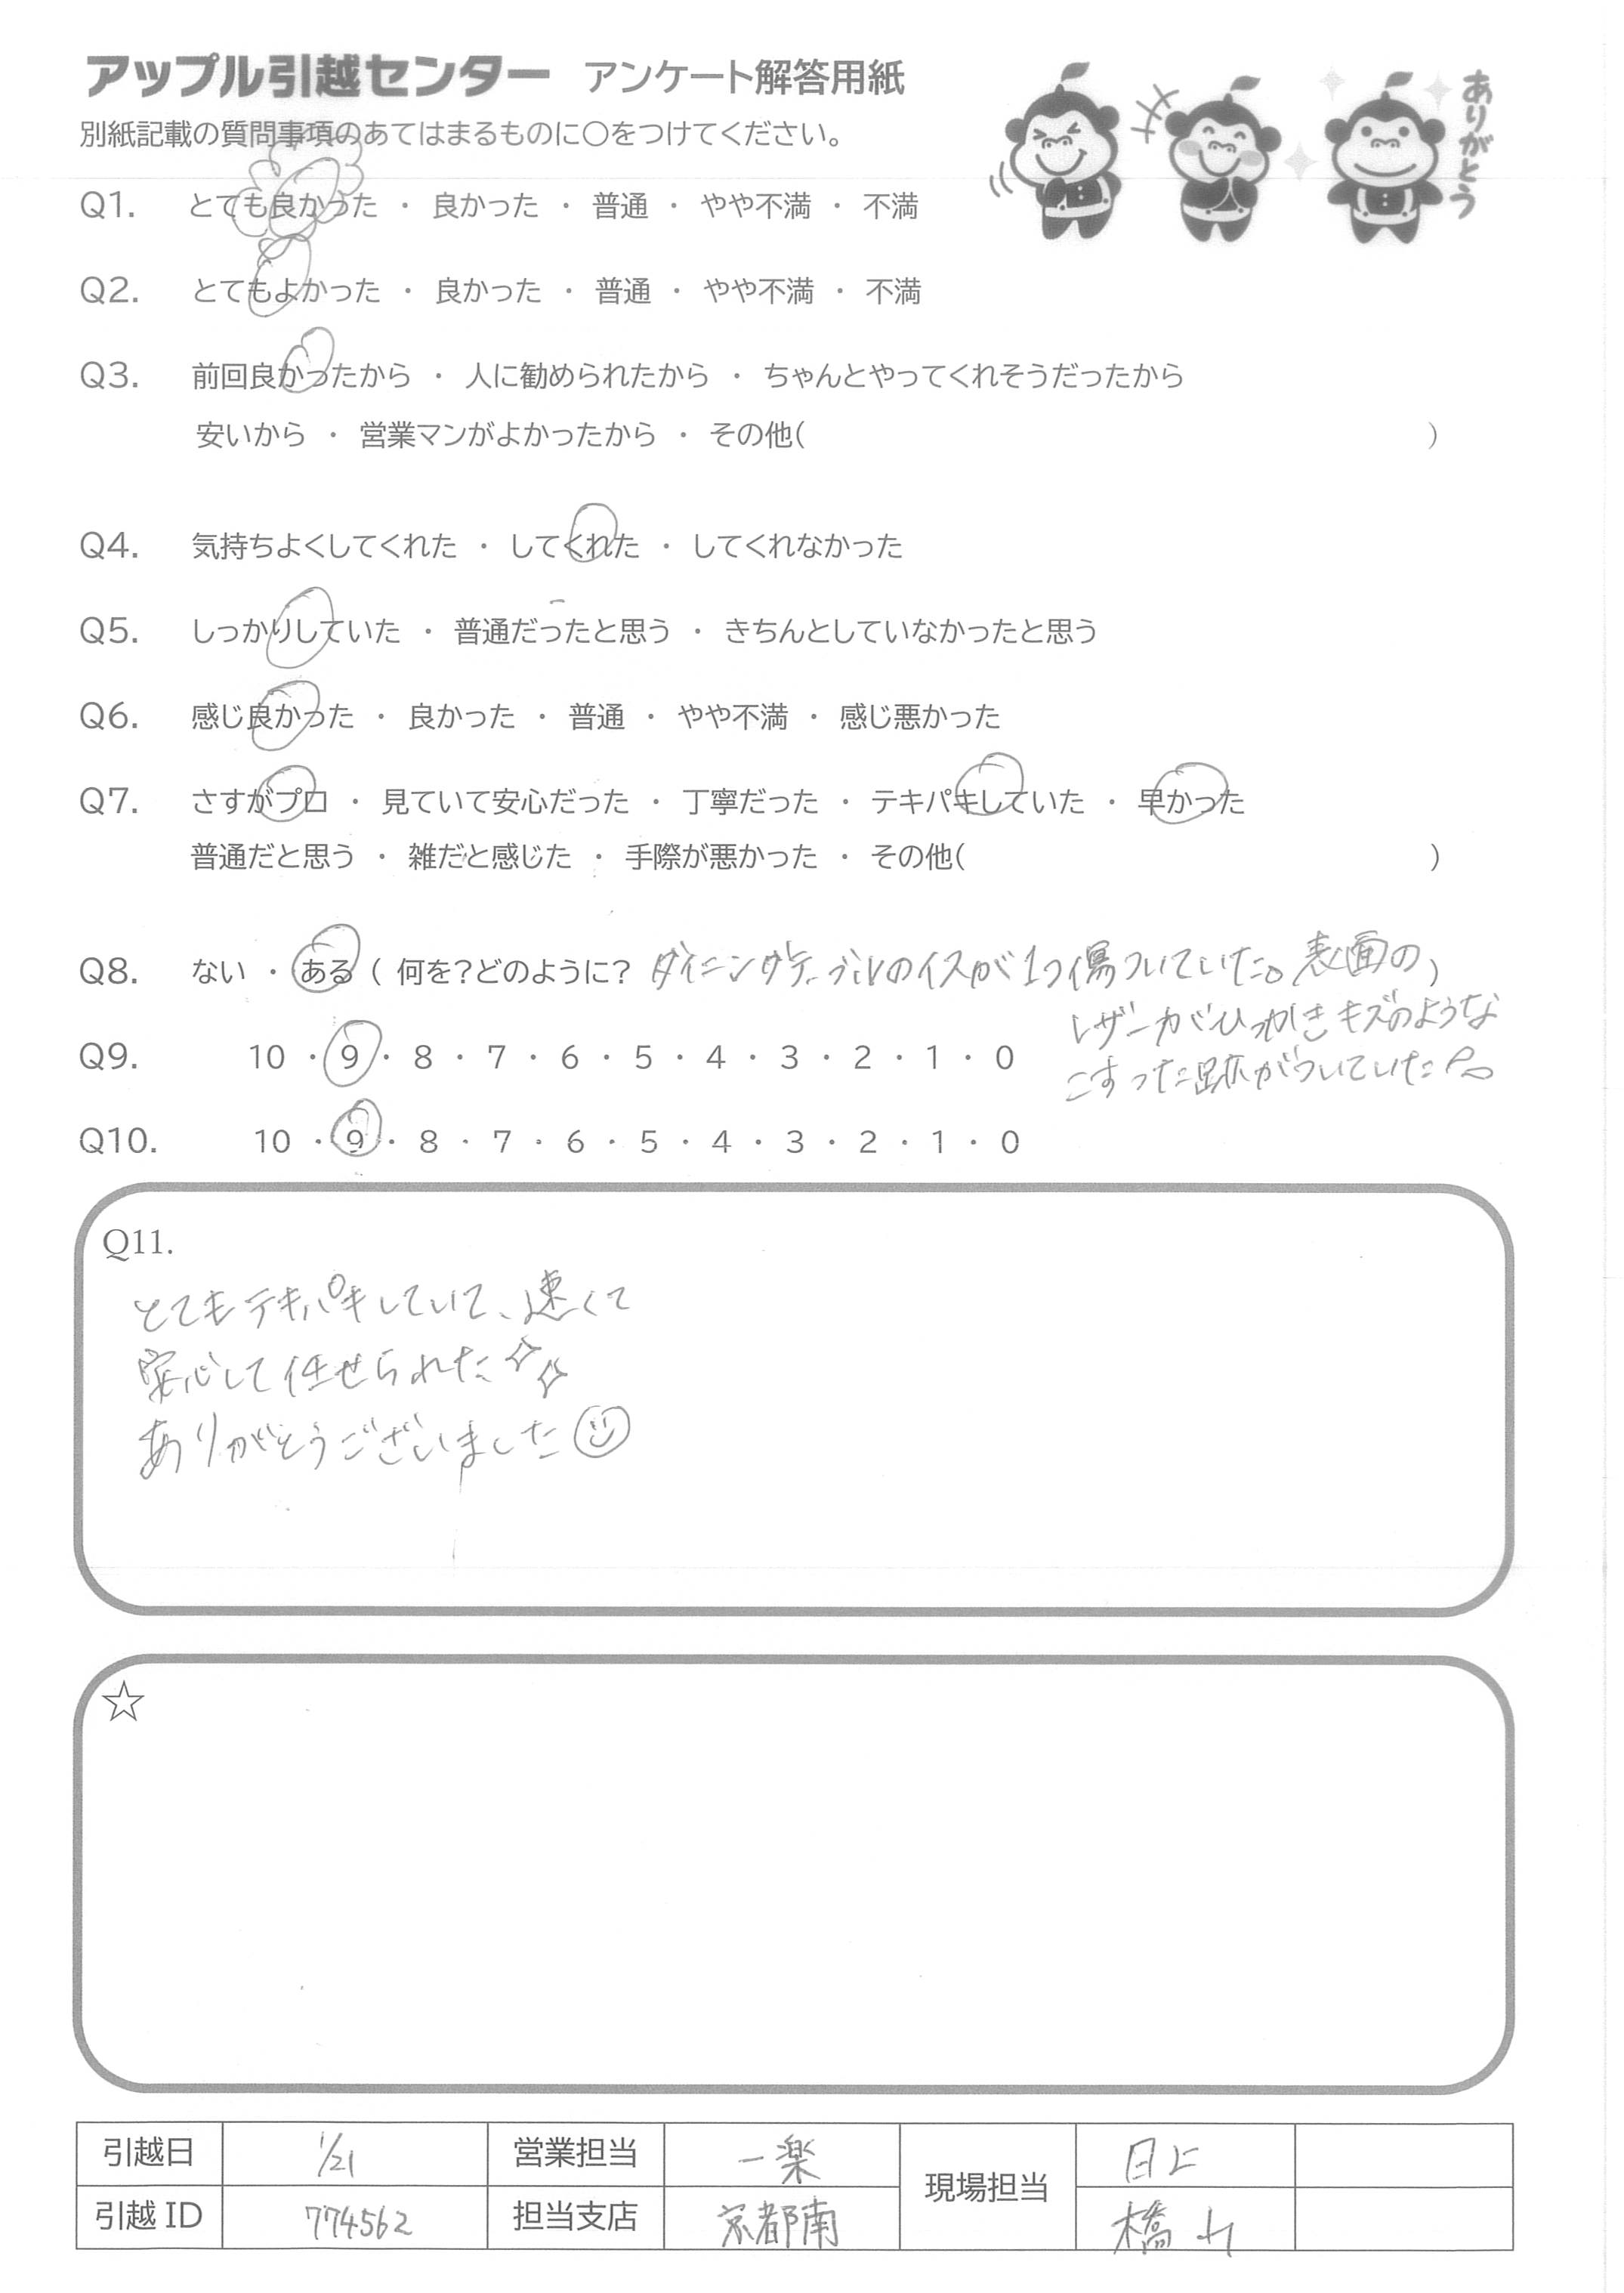 アップル引越センター アンケート解答用紙
別紙記載の質問事項のあてはまるものに○をつけてください。
ありがとう
Q1. とても良かった ・ 良かった ・ 普通 ・ やや不満 ・ 不満
Q2. とてもよかった ・ 良かった ・ 普通 ・ やや不満 ・ 不満
Q3. 前回良かったから ・ 人に勧められたから ・ ちゃんとやってくれそうだったから
安いから ・ 営業マンがよかったから ・ その他( )
Q4. 気持ちよくしてくれた ・ してくれた ・ してくれなかった
Q5. しっかりしていた ・ 普通だったと思う ・ きちんとしていなかったと思う
Q6. 感じ良かった ・ 良かった ・ 普通 ・ やや不満 ・ 感じ悪かった
Q7. さすがプロ ・ 見ていて安心だった ・ 丁寧だった ・ テキパキしていた ・ 早かった
普通だと思う ・ 雑だと感じた ・ 手際が悪かった ・ その他( )
Q8. ない ・ ある ( 何を?どのように? ダイニングテーブルのイスが1つ傷ついていた。表面の )
レザーがひっかきキズのような
こすった跡がついていた。
Q9. 10 ・ 9 ・ 8 ・ 7 ・ 6 ・ 5 ・ 4 ・ 3 ・ 2 ・ 1 ・ 0
Q10. 10 ・ 9 ・ 8 ・ 7 ・ 6 ・ 5 ・ 4 ・ 3 ・ 2 ・ 1 ・ 0
Q11.
とてもテキパキしていて、速くて
安心して任せられた
ありがとうございました
☆
引越日 1/21 営業担当 一楽 現場担当 日上
引越ID 774562 担当支店 京都南 橋